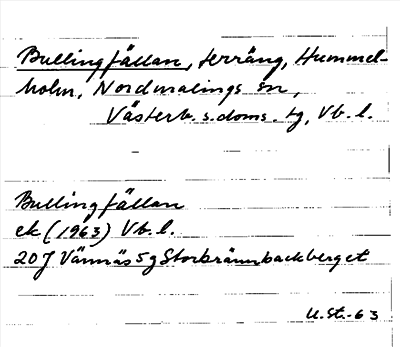 Bullingfällan, terräng, Hummel-
holm, Nordmalings sn,
Västerb. s. doms. tg, Vb. l.
Bullingfällan
ek (1963) Vb. l.
20J Vännäs 5 g Storbrännbackberget
U. St. - 63